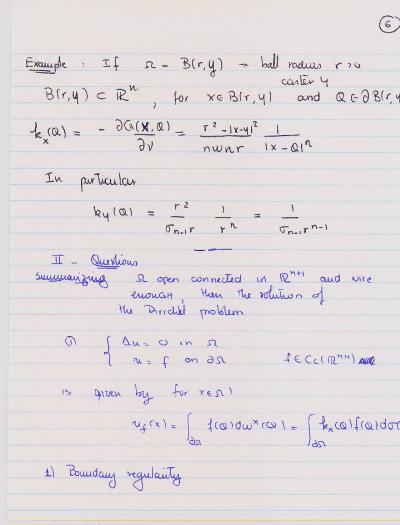 6
Example : If Ω = B(r, y) = ball radius r > 0
center y
B(r, y) ⊂ ℝⁿ, for x ∈ B(r, y) and Q ∈ ∂B(r, y
k_x(Q) = - ∂G(x, Q) / ∂ν = (r² - |x-y|²) / (nωₙr) 1 / |x - Q|ⁿ
In particular
k_y(Q) = r² / (σₙ₋₁ r) 1 / rⁿ = 1 / (σₙ₋₁ rⁿ⁻¹)
II - Questions
Summarizing Ω open connected in ℝⁿ⁺¹ and nice
enough, then the solution of
the Dirichlet problem
{ Δu = 0 in Ω
u = f on ∂Ω f ∈ Cc(ℝⁿ⁺¹)
is given by for x ∈ Ω )
u_f(x) = ∫_∂Ω f(Q) dω^x(Q) = ∫_∂Ω k_x(Q) f(Q) dσ(
1) Boundary regularity